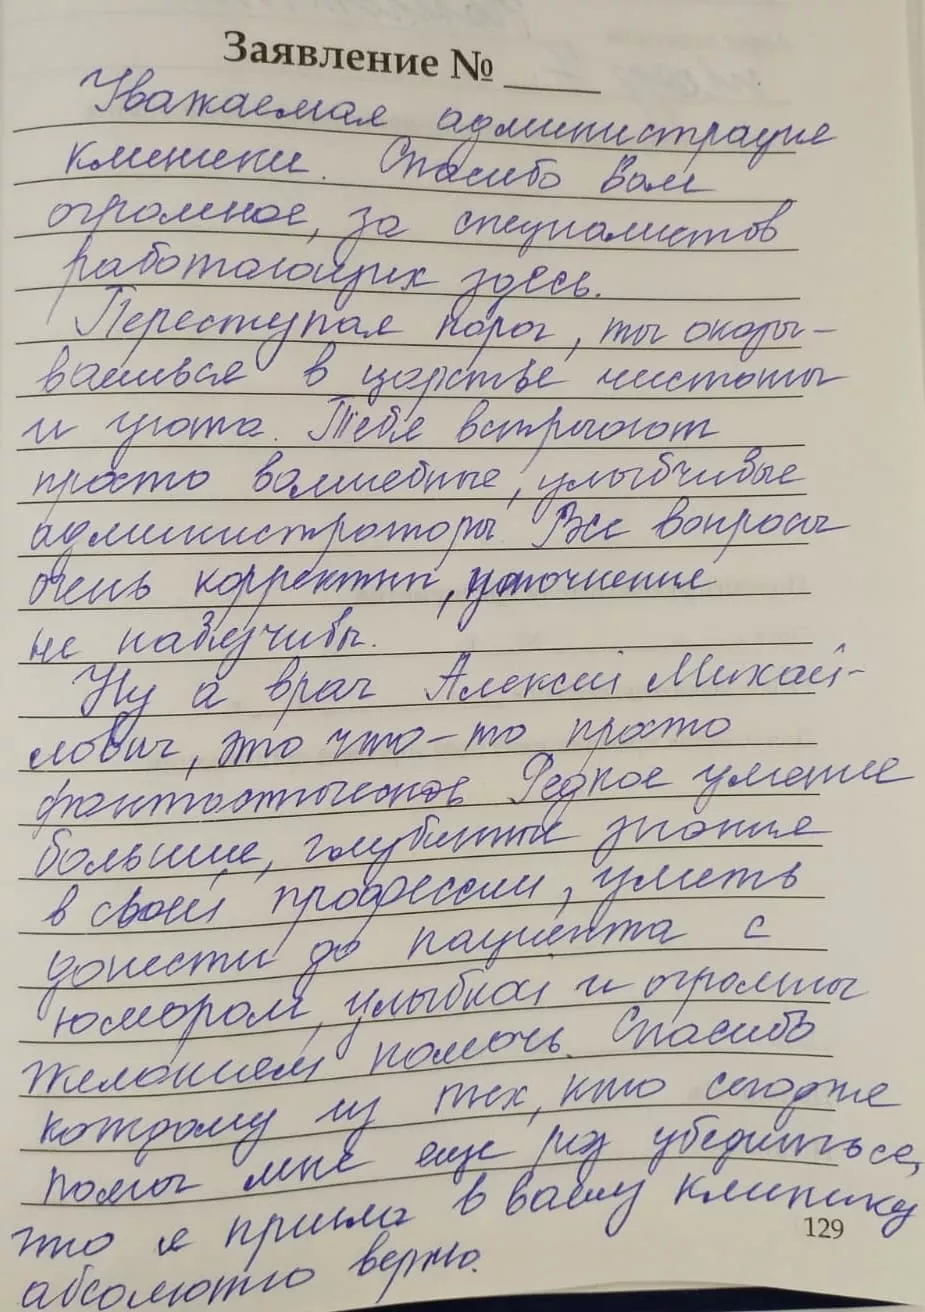 Заявление № ____
Уважаемая администрация
клиники. Спасибо вам
огромное, за специалистов
работающих здесь.
Переступая порог, ты оказы-
ваешься в царстве чистоты
и уюта. Тебя встречают
просто волшебные, улыбчивые
администраторы. Все вопросы
очень корректны, уточнения
не навязчивы.
Ну а врач Алексей Михай-
лович, это что-то просто
фантастическое. Редкое умение
большие, глубинные знания
в своей профессии, уметь
донести до пациента с
юмором, улыбкой и огромны
желанием помочь. Спасибо
каждому из тех, кто сегодня
помог мне еще раз убедиться,
что я пришла в вашу клинику
абсолютно верно.
129